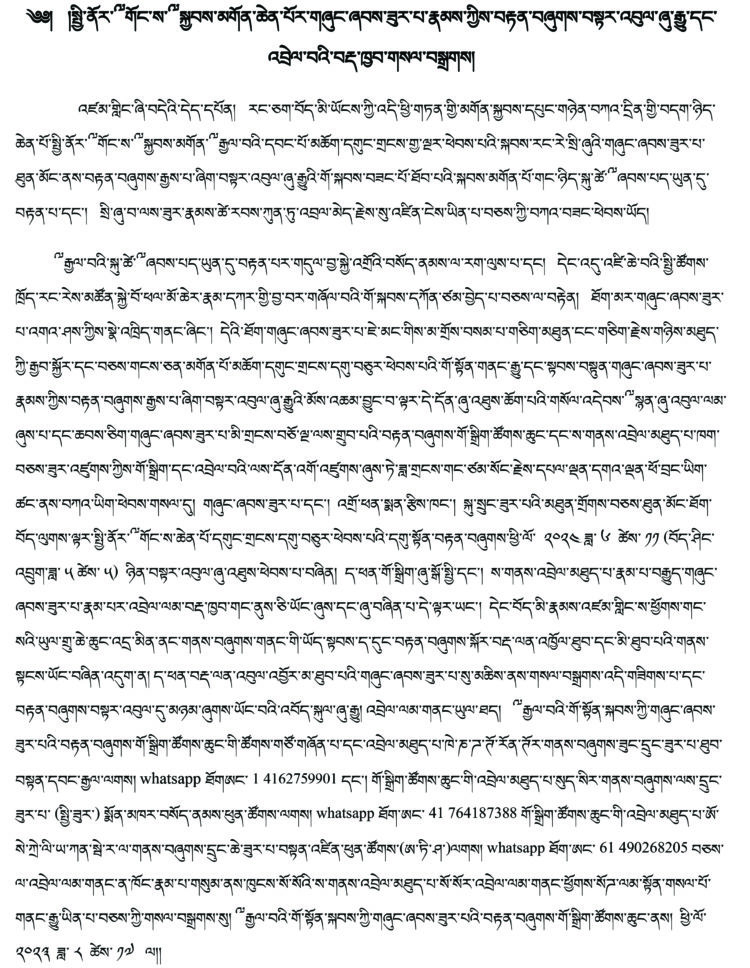 ༄༅། །སྤྱི་ནོར་༸གོང་ས་༸སྐྱབས་མགོན་ཆེན་པོར་གཞུང་ཞབས་ཟུར་པ་རྣམས་ཀྱིས་བརྟན་བཞུགས་བསྟར་འབུལ་ཞུ་རྒྱུ་དང་
འབྲེལ་བའི་བརྡ་ཁྱབ་གསལ་བསྒྲགས།
འཛམ་གླིང་ཞི་བདེའི་དེད་དཔོན། རང་ཅག་བོད་མི་ཡོངས་ཀྱི་འདི་ཕྱི་གཏན་གྱི་མགོན་སྐྱབས་དཔུང་གཉེན་བཀའ་དྲིན་གྱི་བདག་ཉིད་
ཆེན་པོ་སྤྱི་ནོར་༸གོང་ས་༸སྐྱབས་མགོན་༸རྒྱལ་བའི་དབང་པོ་མཆོག་དགུང་གྲངས་གྱ་ལྔར་ཕེབས་པའི་སྐབས་རང་རེ་སྲི་ཞུའི་གཞུང་ཞབས་ཟུར་པ་
ཐུན་མོང་ནས་བརྟན་བཞུགས་རྒྱས་པ་ཞིག་བསྟར་འབུལ་ཞུ་རྒྱུའི་གོ་སྐབས་བཟང་པོ་ཐོབ་པའི་སྐབས་མགོན་པོ་གང་ཉིད་སྐུ་ཚེ་༸ཞབས་པད་ཡུན་དུ་
བརྟན་པ་དང་། སྲི་ཞུ་བ་ལས་ཟུར་རྣམས་ཚེ་རབས་ཀུན་ཏུ་འབྲལ་མེད་རྗེས་སུ་འཛིན་ངེས་ཡིན་པ་བཅས་ཀྱི་བཀའ་བཟང་ཕེབས་ཡོད།
༸རྒྱལ་བའི་སྐུ་ཚེ་༸ཞབས་པད་ཡུན་དུ་བརྟན་པར་གདུལ་བྱ་སྐྱེ་འགྲོའི་བསོད་ནམས་ལ་རག་ལུས་པ་དང་། དེང་འདུ་འཛི་ཆེ་བའི་སྤྱི་ཚོགས་
ཁྲོད་རང་རེས་མཚོན་སྐྱེ་བོ་ཕལ་མོ་ཆེར་རྣམ་དཀར་གྱི་བྱ་བར་གཞོལ་བའི་གོ་སྐབས་དཀོན་ཙམ་བྱེད་པ་བཅས་ལ་བརྟེན། ཐོག་མར་གཞུང་ཞབས་ཟུར་
པ་འགའ་ཤས་ཀྱིས་སྣེ་འཁྲིད་གནང་ཞིང་། དེའི་ཐོག་གཞུང་ཞབས་ཟུར་པ་ཇེ་མང་གིས་མ་གྲོས་བསམ་པ་གཅིག་མཐུན་ངང་གཅིག་རྗེས་གཉིས་མཐུད་
ཀྱི་རྒྱབ་སྐྱོར་དང་བཅས་གངས་ཅན་མགོན་པོ་མཆོག་དགུང་གྲངས་དགུ་བཅུར་ཕེབས་པའི་གོ་སྟོན་གནང་རྒྱུ་དང་སྟབས་བསྟུན་གཞུང་ཞབས་ཟུར་པ་
རྣམས་ཀྱིས་བརྟན་བཞུགས་རྒྱས་པ་ཞིག་བསྟར་འབུལ་ཞུ་རྒྱུའི་མོས་འཆམ་བྱུང་བ་ལྟར་དེ་དོན་ཞུ་འཐུས་ཚོག་པའི་གསོལ་འདེབས་༸སྙན་ཞུ་འབུལ་ལམ་
ཞུས་པ་དང་ཆབས་ཅིག་གཞུང་ཞབས་ཟུར་པ་མི་གྲངས་བཅོ་ལྔ་ལས་གྲུབ་པའི་བརྟན་བཞུགས་གོ་སྒྲིག་ཚོགས་ཆུང་དང་ས་གནས་འབྲེལ་མཐུད་པ་ཁག་
བཅས་ཟུར་འཛུགས་ཀྱིས་གོ་སྒྲིག་དང་འབྲེལ་བའི་ལས་དོན་འགོ་འཛུགས་ཞུས་ཏེ་ཟླ་གྲངས་གང་ཙམ་སོང་རྗེས་དཔལ་ལྡན་དགའ་ལྡན་ཕོ་བྲང་ཡིག་
ཚང་ནས་བཀའ་ཡིག་ཕེབས་གསལ་དུ། གཞུང་ཞབས་ཟུར་པ་དང་། འགྲོ་ཕན་སྨན་རྩིས་ཁང་། སྐུ་སྲུང་ཟུར་པའི་མཐུན་གྲོགས་བཅས་ཐུན་མོང་ཐོག་
བོད་ལུགས་ལྟར་སྤྱི་ནོར་༸གོང་ས་ཆེན་པོ་དགུང་གྲངས་དགུ་བཅུར་ཕེབས་པའི་དགུ་སྟོན་བརྟན་བཞུགས་ཕྱི་ལོ་ ༢༠༢༤ ཟླ་ ༦ ཚེས་ ༡༡ (བོད་ཤིང་
འབྲུག་ཟླ་ ༥ ཚེས་ ༥) ཉིན་བསྟར་འབུལ་ཞུ་འཐུས་ཕེབས་པ་བཞིན། ད་ཕན་གོ་སྒྲིག་ཞུ་སྒོ་སྤྱི་དང་། ས་གནས་འབྲེལ་མཐུད་པ་རྣམ་པ་བརྒྱུད་གཞུང་
ཞབས་ཟུར་པ་རྣམ་པར་འབྲེལ་ལམ་བརྡ་ཁྱབ་གང་ནུས་ཅི་ཡོང་ཞུས་དང་ཞུ་བཞིན་པ་དེ་ལྟར་ཡང་། དེང་བོད་མི་རྣམས་འཛམ་གླིང་ས་ཕྱོགས་གང་
སའི་ཡུལ་གྲུ་ཆེ་ཆུང་འདྲ་མིན་ནང་གནས་བཞུགས་གནང་གི་ཡོད་སྟབས་ད་དུང་བརྟན་བཞུགས་སྐོར་བརྡ་ལན་འཁྱོལ་ཐུབ་དང་མི་ཐུབ་པའི་གནས་
སྟངས་ཡོང་བཞིན་འདུག་ན། ད་ཕན་བརྡ་ལན་འབུལ་འབྱོར་མ་ཐུབ་པའི་གཞུང་ཞབས་ཟུར་པ་སུ་མཆིས་ནས་གསལ་བསྒྲགས་འདི་གཟིགས་པ་དང་
བརྟན་བཞུགས་བསྟར་འབུལ་དུ་མཉམ་ཞུགས་ཡོང་བའི་འབོད་སྐུལ་ཞུ་རྒྱུ། འབྲེལ་ལམ་གནང་ཡུལ་ཐད། ༸རྒྱལ་བའི་གོ་སྟོན་སྐབས་ཀྱི་གཞུང་ཞབས་
ཟུར་པའི་བརྟན་བཞུགས་གོ་སྒྲིག་ཚོགས་ཆུང་གི་ཚོགས་གཙོ་གཞོན་པ་དང་འབྲེལ་མཐུད་པ་ཁེ་ན་ཌ་ཊོ་རོན་ཊོར་གནས་བཞུགས་ཟུང་དྲུང་ཟུར་པ་ཐུབ་
བསྟན་དབང་རྒྱལ་ལགས། whatsapp ཐོག་ཨང་ 1 4162759901 དང་། གོ་སྒྲིག་ཚོགས་ཆུང་གི་འབྲེལ་མཐུད་པ་སུད་སིར་གནས་བཞུགས་ལས་དྲུང་
ཟུར་པ་ (སྤྱི་ཟུར་) སྨོན་མཁར་བསོད་ནམས་ཕུན་ཚོགས་ལགས། whatsapp ཐོག་ཨང་ 41 764187388 གོ་སྒྲིག་ཚོགས་ཆུང་གི་འབྲེལ་མཐུད་པ་ཨོ་
སེ་ཀྲེ་ལི་ཡ་ཀན་སྦེ་ར་ལ་གནས་བཞུགས་དྲུང་ཆེ་ཟུར་པ་བསྟན་འཛིན་ཕུན་ཚོགས་(ཨ་ཏི་ཤ་)ལགས། whatsapp ཐོག་ཨང་ 61 490268205 བཅས་
ལ་འབྲེལ་ལམ་གནང་ན་ཁོང་རྣམ་པ་གསུམ་ནས་ཁུངས་སོ་སོའི་ས་གནས་འབྲེལ་མཐུད་པ་སོ་སོར་འབྲེལ་ལམ་གནང་ཕྱོགས་སོཊ་ལམ་སྟོན་གསལ་པོ་
གནང་རྒྱུ་ཡིན་པ་བཅས་ཀྱི་གསལ་བསྒྲགས་སུ། ༸རྒྱལ་བའི་གོ་སྟོན་སྐབས་ཀྱི་གཞུང་ཞབས་ཟུར་པའི་བརྟན་བཞུགས་གོ་སྒྲིག་ཚོགས་ཆུང་ནས། ཕྱི་ལོ་
༢༠༢༣ ཟླ་ ༨ ཚེས་ ༡༧ ལ།།